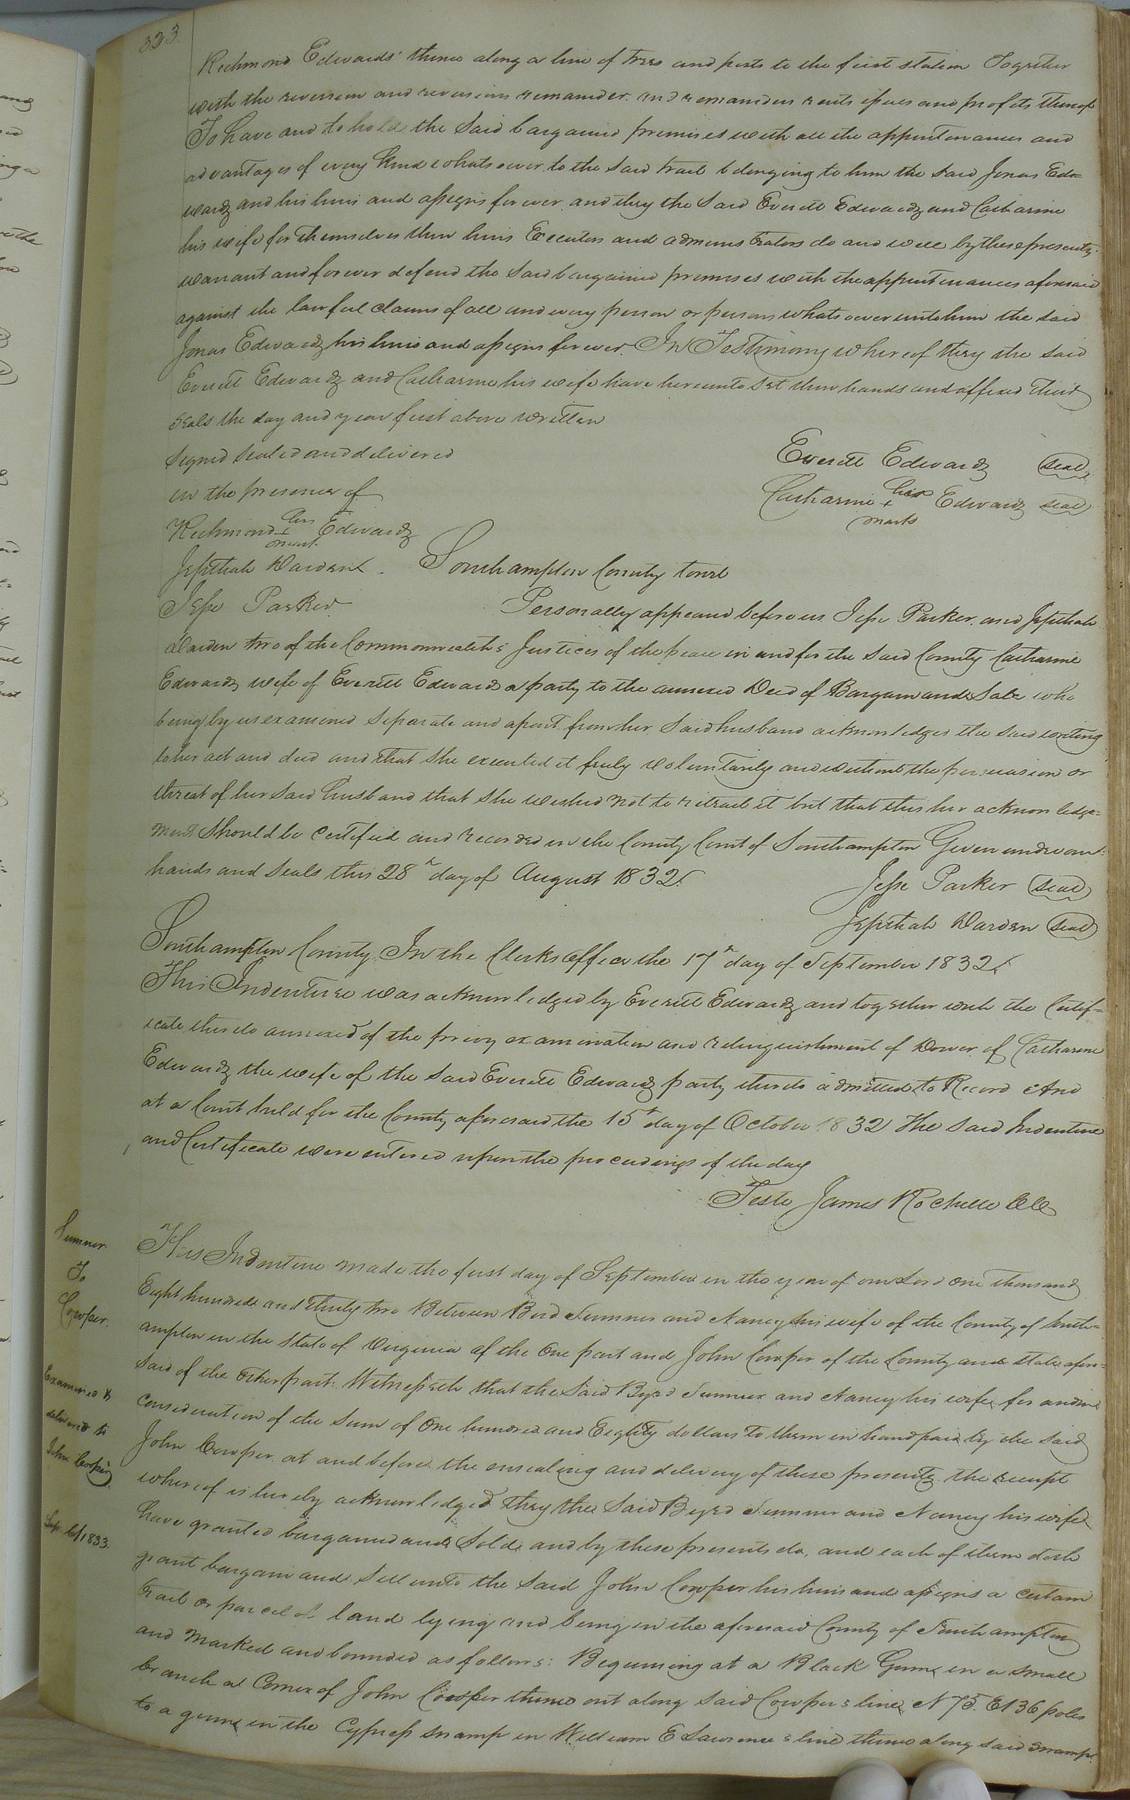 333
Richmond Edwards' thence along a line of trees and posts to the first station Together
with the reversion and reversions remainder and remainders rents issues and profits thereof
To have and to hold the said bargained premises with all the appurtenances and
advantages of every kind whatsoever to the said tract belonging to him the said Jonas Ed-
wards and his heirs and assigns forever. and they the said Everett Edwards and Catharine
his wife for themselves their heirs Executors and administrators do and will by these presents
warrant and forever defend the said bargained premises with the appurtenances aforesaid
against the lawful claims of all and every person or persons whatsoever unto him the said
Jonas Edwards his heirs and assigns forever. In Testimony whereof they the said
Everett Edwards and Catharine his wife have hereunto set their hands and affixed their
seals the day and year first above written
Signed sealed and delivered
in the presence of
Everett Edwards (seal)
Catharine her + mark Edwards (seal)
Richmond his + mark Edwards
Jepthah Darden
Jesse Parker
Southampton County towit
Personally appeared before us Jesse Parker and Jepthah
Darden two of the Commonwealth's Justices of the peace in and for the said County Catharine
Edwards wife of Everett Edwards a party to the annexed Deed of Bargain and Sale who
being by us examined separate and apart from her said husband acknowledges the said writing
to her act and deed and that she executed it freely voluntarily and without the persuasion or
threat of her said husband that she wished not to retract it but that this her acknowledge-
ment should be certified and recorded in the County Court of Southampton Given under our
hands and seals this 28th day of August 1832.
Jesse Parker (seal)
Jepthah Darden (seal)
Southampton County In the Clerks Office the 17th day of September 1832.
This Indenture was acknowledged by Everett Edwards and together with the Certif-
icate thereto annexed of the privy examination and relinquishment of Dower of Catharine
Edwards the wife of the said Everett Edwards party thereto admitted to Record And
at a Court held for the County aforesaid the 15th day of October 1832 The said Indenture
and Certificate were entered upon the proceedings of the day
Teste James Rochelle CC
Sumner
To
Cowper
Examined &
delivered to
John Cowper
1833.
This Indenture made the first day of September in the year of our Lord one thousand
Eight hundred and thirty two Between Byrd Sumner and Nancy his wife of the County of South-
ampton in the State of Virginia of the one part and John Cowper of the County and State afore-
said of the other part. Witnesseth that the said Byrd Sumner and Nancy his wife for and in
consideration of the sum of One hundred and Eighty dollars to them in hand paid by the said
John Cowper at and before the ensealing and delivery of these presents the receipt
whereof is hereby acknowledged they the said Byrd Sumner and Nancy his wife
have granted bargained and sold and by these presents do, and each of them doth
grant bargain and sell unto the said John Cowper his heirs and assigns a certain
tract or parcel of land lying and being in the aforesaid County of Southampton
and marked and bounded as follows: Beginning at a Black Gum in a small
branch a Corner of John Cowper thence out along said Cowper's line N 75. E 136 poles
to a gum in the Cypress swamp in William E Lawrence's line thence along said swamp